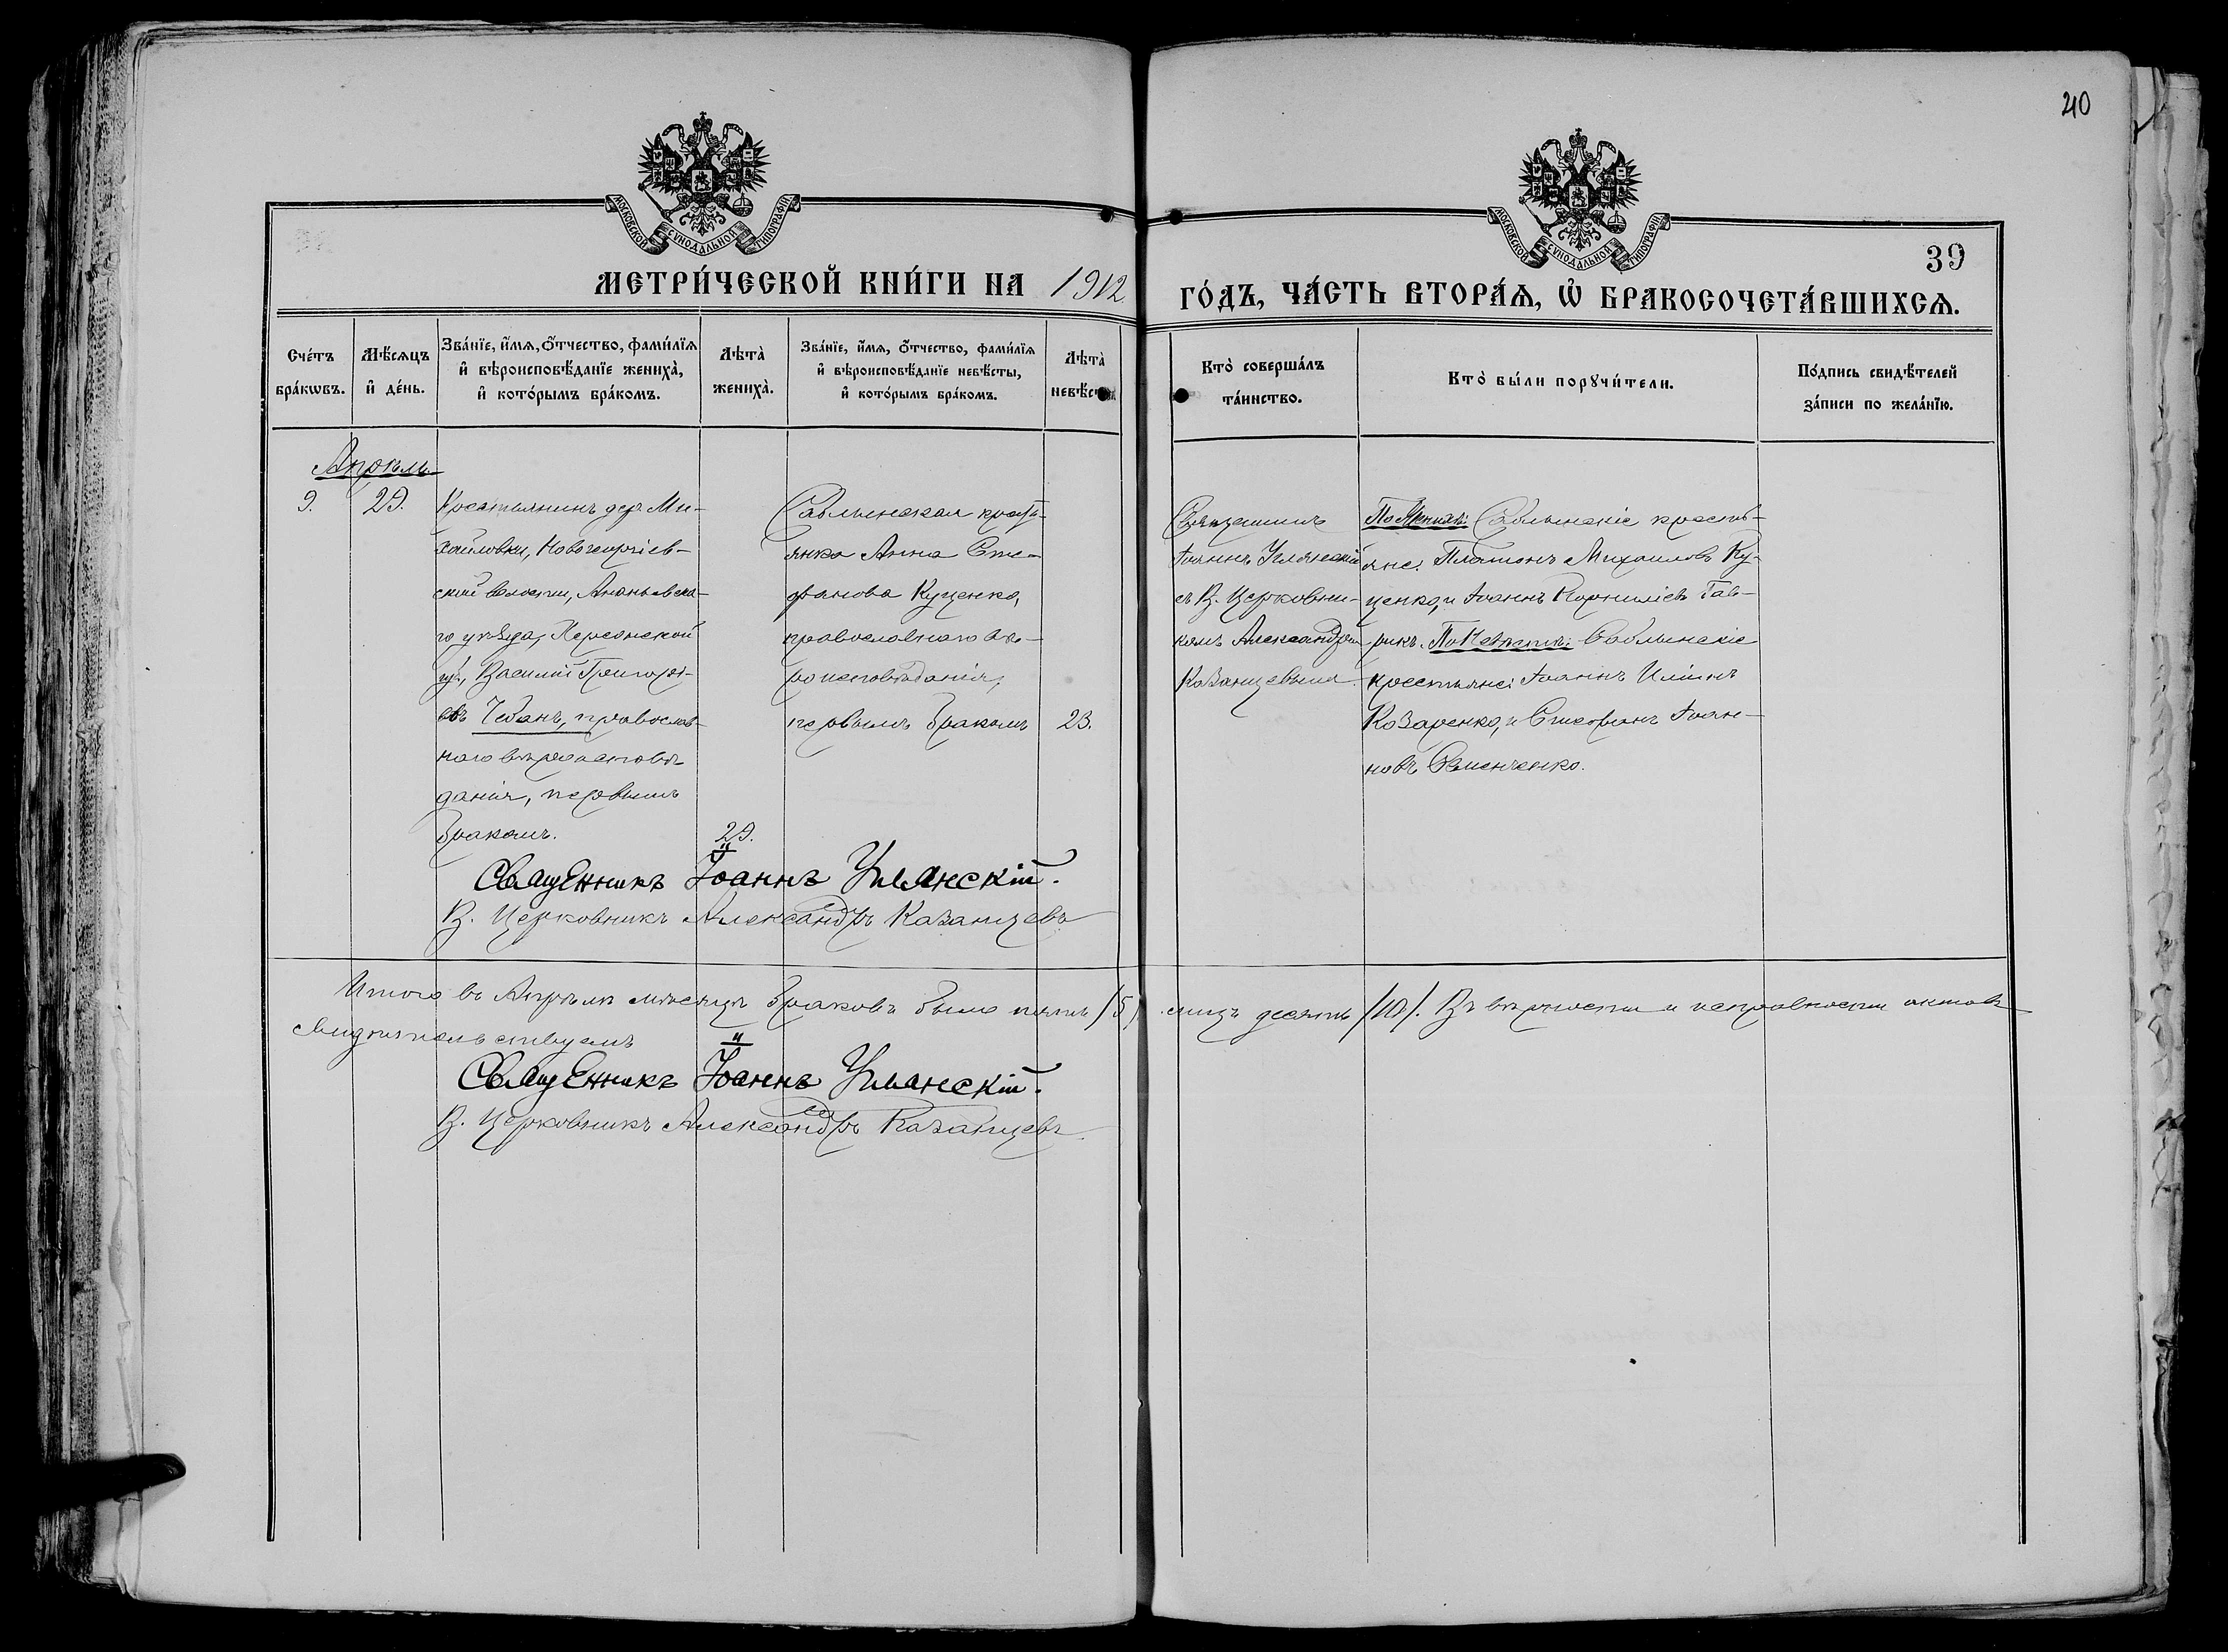 40
МОСКОВСКОЙ СѴНОДАЛЬНОЙ ТИПОГРАФІИ
МОСКОВСКОЙ СѴНОДАЛЬНОЙ ТИПОГРАФІИ
39
МЕТРИ́ЧЕСКОЙ КНИ́ГИ НА 1912
ГО́ДЪ, ЧА́СТЬ ВТОРА́Ѧ, Ѡ҆ БРАКОСОЧЕТА́ВШИХСѦ.
Сче́тъ
бра́кѡвъ.
Мѣ́сѧцъ
и҆ де́нь.
Зва́нїе, и҆́мѧ, ѻ҆́тчество, фами́лїѧ
и҆ вѣроисповѣ́данїе жениха̀,
и҆ кото́рымъ бра́комъ.
Лѣта̀
жениха̀.
Зва́нїе, и҆́мѧ, ѻ҆́тчество, фами́лїѧ
и҆ вѣроисповѣ́данїе невѣ́сты,
и҆ кото́рымъ бра́комъ.
Лѣта̀
невѣ́сты.
Кто̀ соверша́лъ
та́инство.
Кто̀ бы́ли порꙋчи́тели.
По́дпись свидѣ́телей
за́писи по жела́нїю.
Апрѣль
9.
29.
Крестьянинъ дер. Ми-
хайловки, Новогеоргіев-
ской волости, Ананьевска-
го уѣзда, Херсонской
губ., Василій Григорі-
евъ Чебанъ, православ-
наго вѣроисповѣ-
данія, первымъ
бракомъ.
29.
Саблынская кресть-
янка Анна Сте-
фанова Куценко,
православнаго вѣ-
роисповѣданія,
первымъ бракомъ
23.
Священникъ
Іоаннъ Уманскій
съ В. Церковни-
комъ Александромъ
Казанцевымъ
По Женихѣ: Саблынскіе кресть-
яне: Платонъ Михаиловъ Ку-
ценко, и Іоаннъ Корниліевъ Гав-
рикъ. По Невѣстѣ: Саблынскіе
крестьяне: Іоаннъ Иліинъ
Козаренко, и Стефанъ Іоан-
новъ Семенченко.
Священникъ Іоаннъ Уманскій.
В. Церковникъ Александръ Казанцевъ
Итого въ Апрѣлѣ мѣсяцѣ браковъ было пять /5/ лицъ десять /10/. Въ вѣрности и исправности актовъ
свидѣтельствуемъ
Священникъ Іоаннъ Уманскій.
В. Церковникъ Александръ Казанцевъ